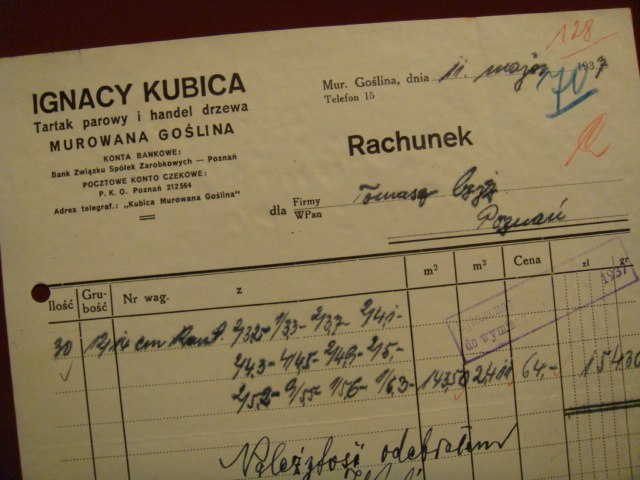 128
IGNACY KUBICA
Tartak parowy i handel drzewa
MUROWANA GOŚLINA
KONTA BANKOWE:
Bank Związku Spółek Zarobkowych — Poznań
POCZTOWE KONTO CZEKOWE:
P. K. O. Poznań 212564
Adres telegraf.: „Kubica Murowana Goślina"
Mur. Goślina, dnia 11. maja 1937
Telefon 15
70
Rachunek
dla Firmy WPan Tomasz Czyż
Poznań
Ilość Grubość Nr wag. z m² m³ Cena zł gr
30 12/12 cm Kant. 2/3,25- 1/3,3- 2/3,7- 2/4,1-
2/4,3- 4/4,5- 2/4,9- 2/5,-
2/5,2- 1/6,3- 143,50 2,411 64,- 154 30
do
1937
Należytość odebrałem